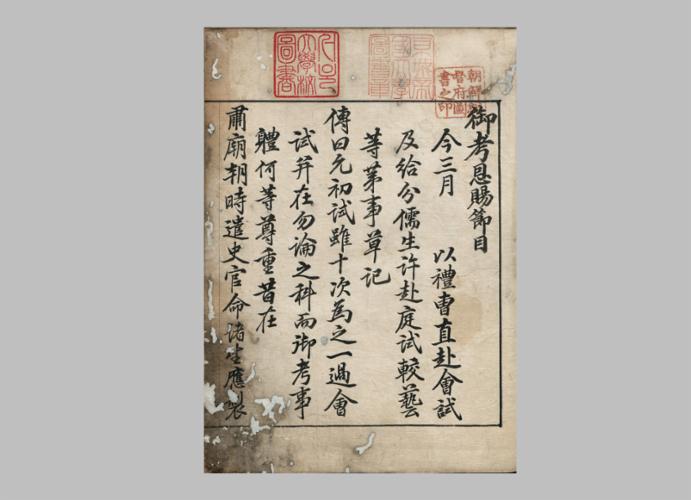 御考恩賜節目
今三月 以禮曹直赴會試
及給分儒生許赴庭試較藝
等第事草記
傳曰元初試雖十次爲之一過會
試并在勿論之科而御考事
體何等尊重昔在
肅廟朝時遣史官命諸生應製
朝鮮總
督府圖
書之印